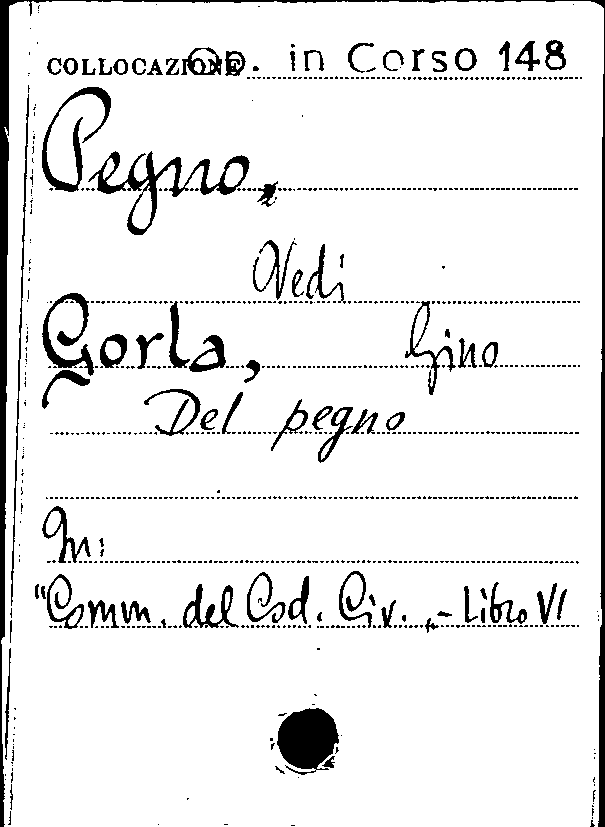 COLLOCAZIONE Op. in Corso 148
Pegno,
Vedi
Gorla, Gino
Del pegno
In:
"Comm. del Cod. Civ. „- Libro VI